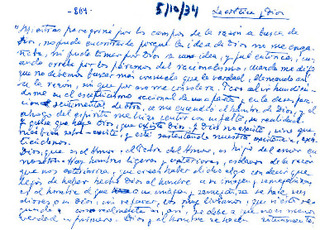 - 204 -
5/10/34
Mientras peregriné por los campos de la razón a busca de
Dios, no pude encontrarle porque la idea de Dios no me enga-
ñaba, ni pude tomar por Dios a una idea, y fué entonces, cuan-
do erraba por los páramos del racionalismo, cuando me dije
que no debemos buscar más consuelo que la verdad, llamando así
a la razón, sin que por eso me consolara. Pero al ir hundién-
dome en el escepticismo racional de una parte y en la desespera-
ción sentimental de otra, se me encendió el hambre de Dios, y el
ahogo de espíritu me hizo sentir con su falta, su realidad.
Y quise que haya Dios, que exista Dios. Y Dios no existe, sino que
más bien sobre-existe, y está sustentando nuestra existencia, exis-
tiéndonos.
Dios, que es el Amor, el Padre del Amor, es hijo del amor en
nosotros. Hay hombres ligeros y exteriores, esclavos de la razón
que nos exterioriza, que creen haber dicho algo con decir que
lejos de haber hecho Dios al hombre a su imagen y semejanza
es el hombre el que a su imagen y semejanza se hace sus
dioses o su Dios, sin reparar, los muy livianos, que si esto se-
gundo es, como realmente es, así, se debe a que no es menos
verdad lo primero. Dios y el hombre se hacen mutuamente